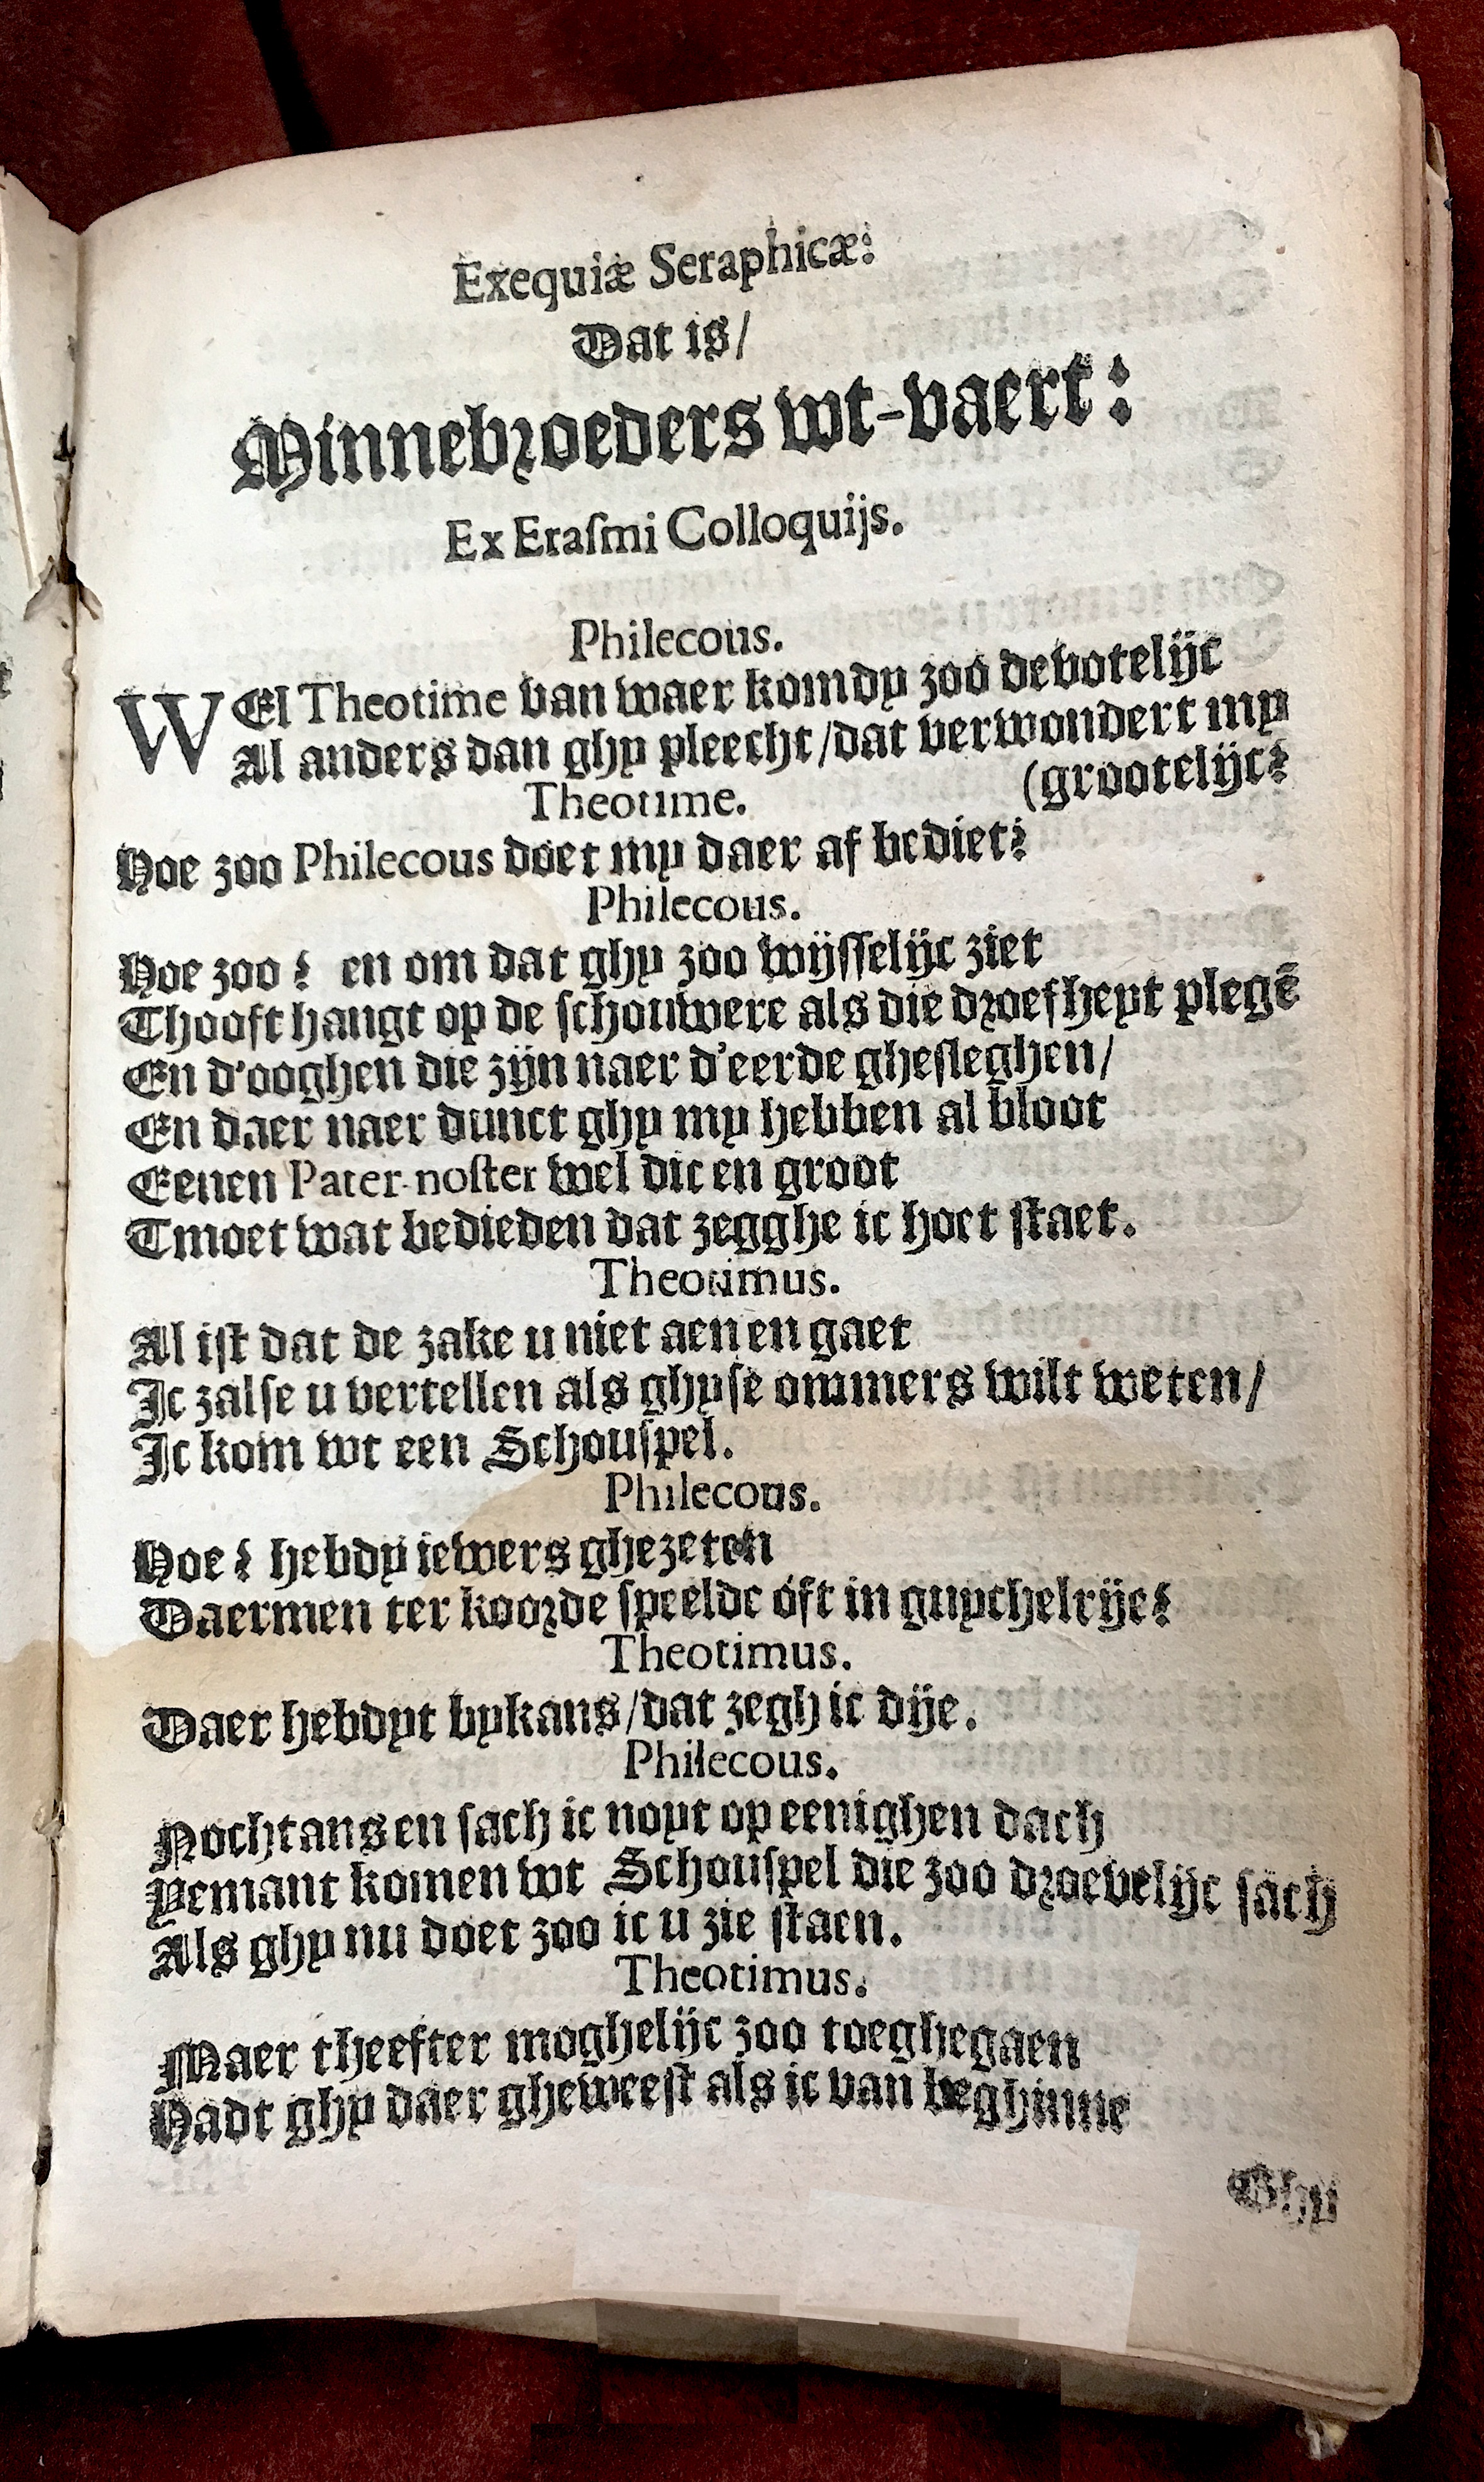 Exequiæ Seraphicæ:
Dat is/
Minnebroeders wt-vaert:
Ex Eraſmi Colloquijs.
Philecous.
WEl Theotime van waer komdy zoo devotelijc
Al anders dan ghy pleecht/dat verwondert my
(grootelijc?
Theotime.
Hoe zoo Philecous doet my daer af bediet?
Philecous.
Hoe zoo? en om dat ghy zoo wijſſelijc ziet
Thooft hangt op de ſchouwere als die droefheyt plegē
En d'ooghen die zijn naer d'eerde gheſleghen/
En daer naer dunct ghy my hebben al bloot
Eenen Pater-noſter wel dic en groot
Tmoet wat bedieden dat zegghe ic hoet ſtaet.
Theotimus.
Al iſt dat de zake u niet aen en gaet
Ic zalſe u vertellen als ghyſe ommers wilt weten/
Ic kom wt een Schouſpel.
Philecous.
Hoe? hebdy iewers ghezeten
Daermen ter koorde ſpeelde óft in guychelrije?
Theotimus.
Daer hebdyt bykans/dat zegh ic dije.
Philecous.
Nochtans en ſach ic noyt op eenighen dach
Yemant komen wt Schouſpel die zoo droevelijc ſach
Als ghy nu doet zoo ic u zie ſtaen.
Theotimus.
Maer theefter moghelijc zoo toeghegaen
Hadt ghy daer gheweeſt als ic van beghinne
Ghy